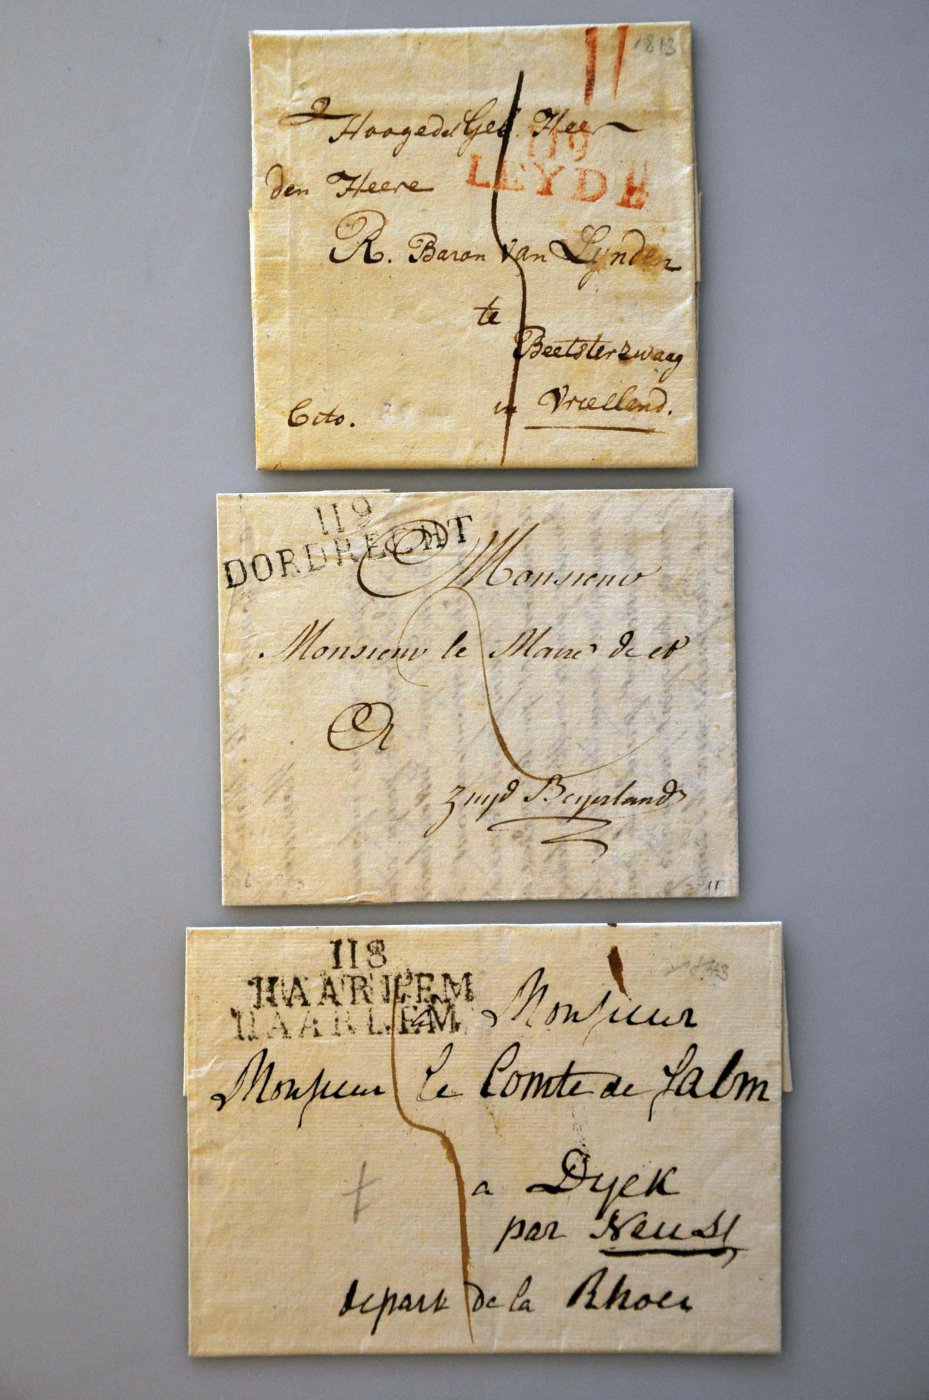 1813
119
LEYDE
Hoogedel Geb. Heer
den Heere
R. Baron van Lynden
te
Beetsterzwaag
in Vriesland.
Cito.
119
DORDRECHT
Monsieur
Monsieur le Maire de et
A
Zuyd Beyerland
118
HAARLEM
HAARLEM
Monsieur
Monsieur le Comte de Salm
a Dyck
par Neuss
depart de la Rhoer